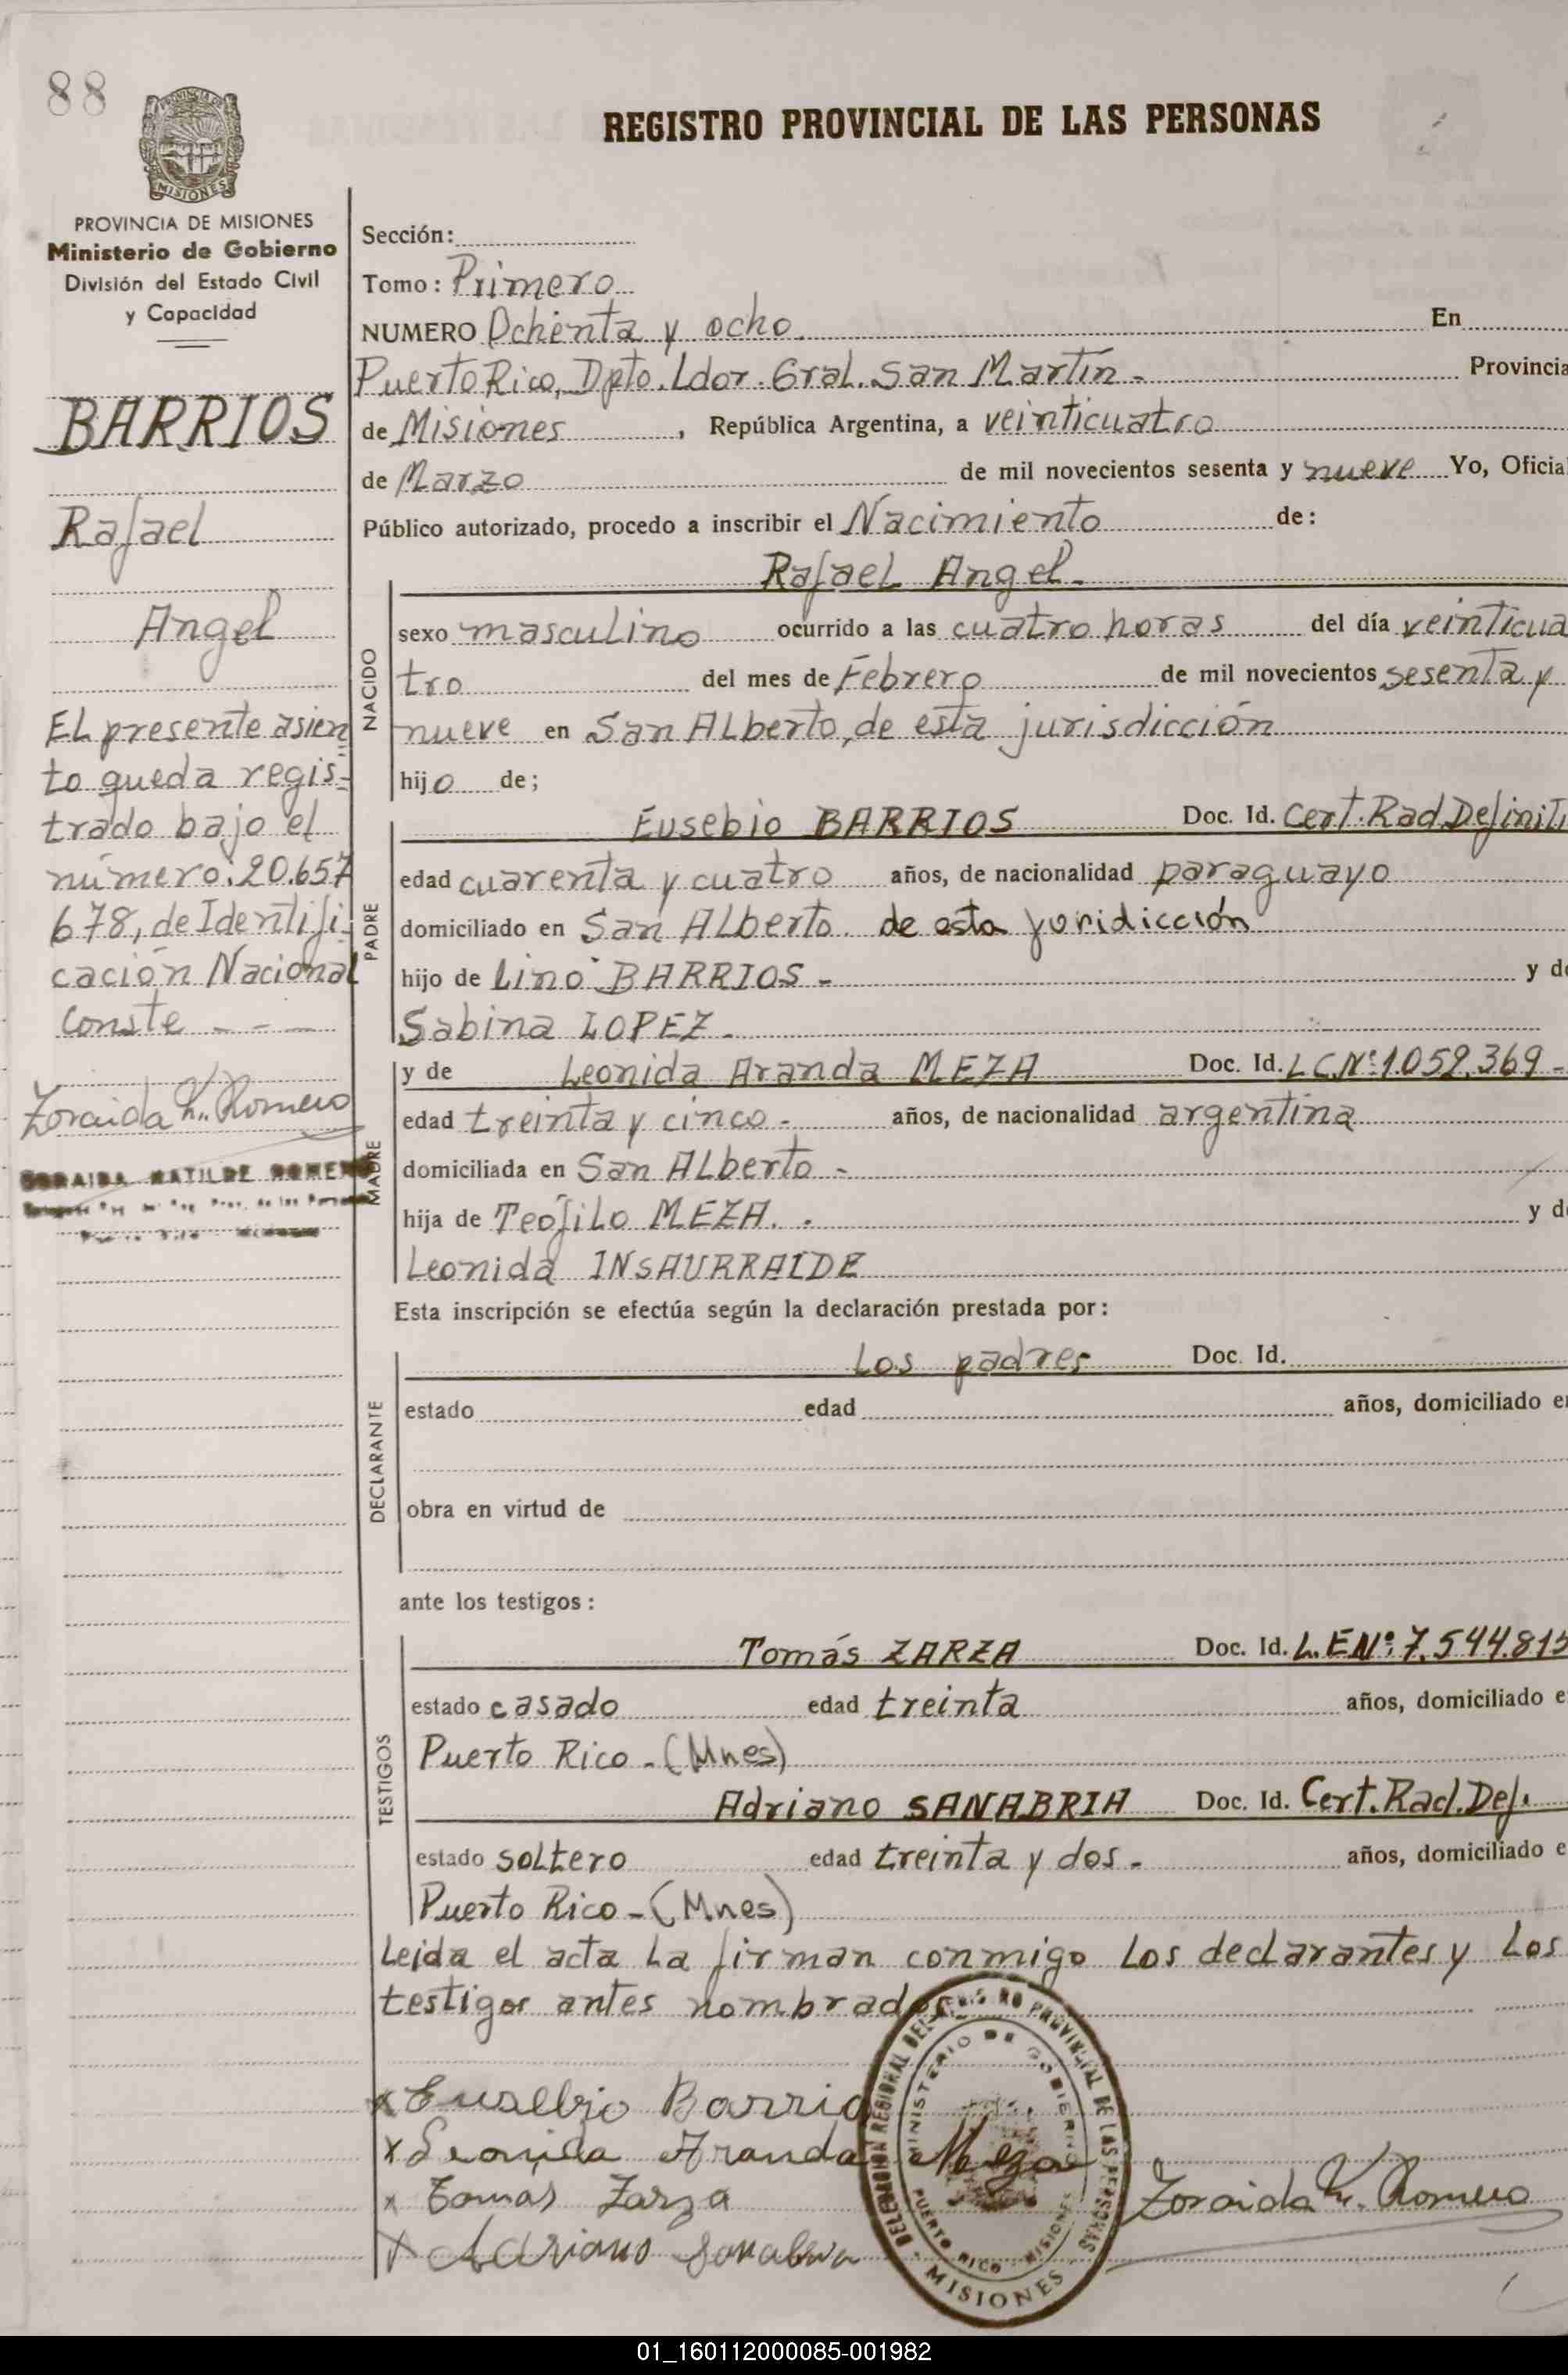 88
REGISTRO PROVINCIAL DE LAS PERSONAS
PROVINCIA DE MISIONES
Ministerio de Gobierno
División del Estado Civil
y Capacidad
BARRIOS
Rafael
Angel
EL presente asien
to queda regis-
trado bajo el
número: 20.657
678, de Identifi-
cación Nacional
Conste - - -
Zoraida M. Romero
ZORAIDA MATILDE ROMERO
Sección:
Tomo: Primero
NUMERO Ochenta y ocho. En
Puerto Rico, Dpto. Ldor. Gral. San Martín - Provincia
de Misiones, República Argentina, a veinticuatro
de Marzo de mil novecientos sesenta y nueve Yo, Oficial
Público autorizado, procedo a inscribir el Nacimiento de:
NACIDO
Rafael Angel -
sexo masculino ocurrido a las cuatro horas del día veinticua
tro del mes de Febrero de mil novecientos sesenta y
nueve en San ALberto, de esta jurisdicción
hijo de;
PADRE
Eusebio BARRIOS Doc. Id. Cert. Rad. Definiti
edad cuarenta y cuatro años, de nacionalidad paraguayo
domiciliado en San ALberto. de esta juridicción
hijo de Lino BARRIOS - y de
Sabina LOPEZ -
MADRE
y de Leonida Aranda MEZA Doc. Id. L C Nº 1.052.369 -
edad treinta y cinco - años, de nacionalidad argentina
domiciliada en San ALberto -
hija de Teófilo MEZA. . y de
Leonida INSAURRALDE
Esta inscripción se efectúa según la declaración prestada por:
DECLARANTE
Los padres Doc. Id.
estado edad años, domiciliado en
obra en virtud de
ante los testigos:
TESTIGOS
Tomás ZARZA Doc. Id. L. E Nº: 7.544.815
estado casado edad treinta años, domiciliado e
Puerto Rico - (Mnes)
Adriano SANABRIA Doc. Id. Cert. Rad. Def.
estado soltero edad treinta y dos - años, domiciliado e
Puerto Rico - (Mnes)
Leida el acta la firman conmigo los declarantes y los
testigos antes nombrados
x Eusebio Barrio
x Leonida Aranda Meza
x Tomas Zarza
x Adriano Sanabria
Zoraida M. Romero
DELEGACION REGIONAL DEL REGISTRO PROVINCIAL DE LAS PERSONAS
MINISTERIO DE GOBIERNO
PUERTO RICO - MISIONES
- MISIONES -
01_160112000085-001982